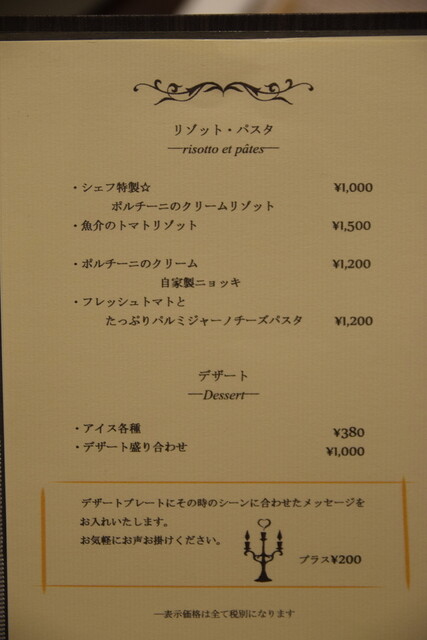 リゾット・パスタ
—risotto et pâtes—
・シェフ特製☆ ¥1,000
ポルチーニのクリームリゾット
・魚介のトマトリゾット ¥1,500
・ポルチーニのクリーム ¥1,200
自家製ニョッキ
・フレッシュトマトと
たっぷりパルミジャーノチーズパスタ ¥1,200
デザート
—Dessert—
・アイス各種 ¥380
・デザート盛り合わせ ¥1,000
デザートプレートにその時のシーンに合わせたメッセージを
お入れいたします。
お気軽にお声お掛けください。
プラス¥200
—表示価格は全て税別になります